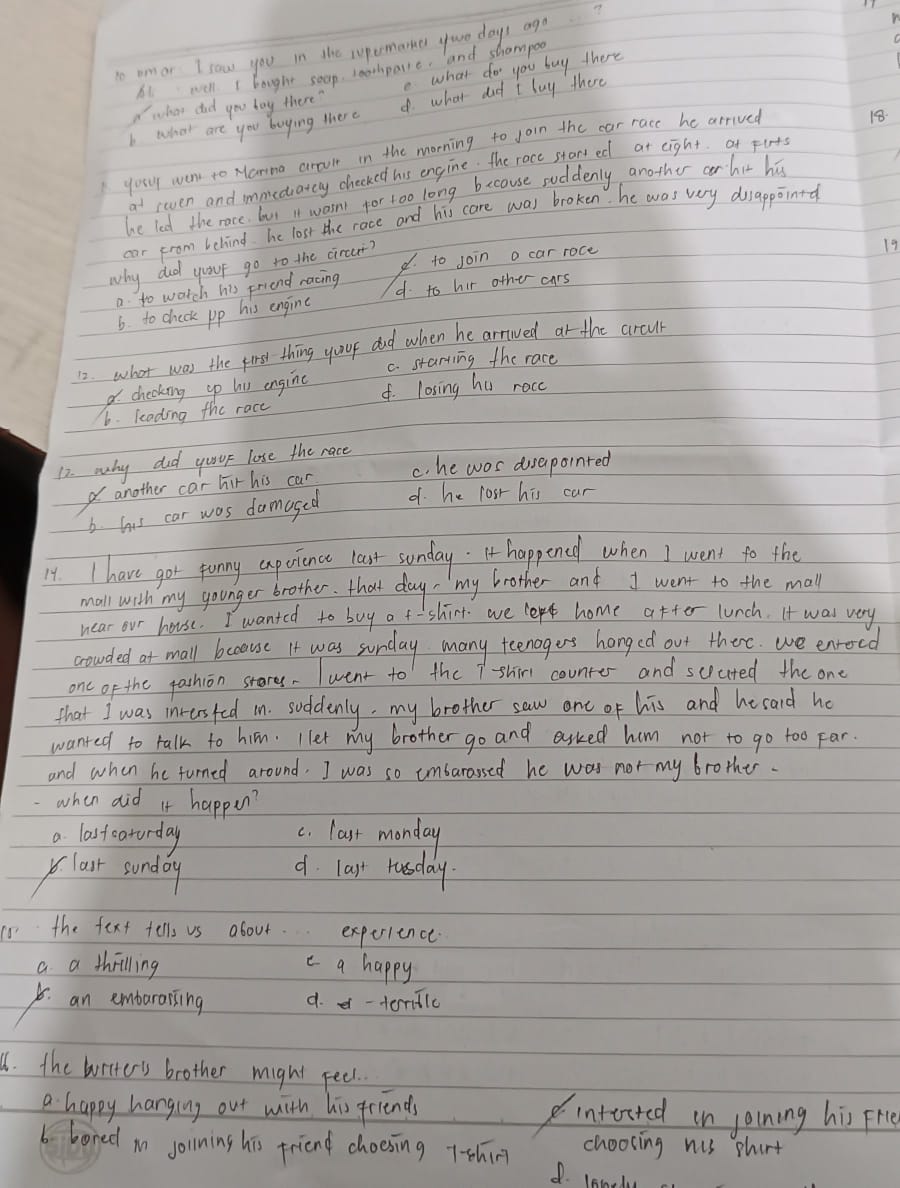 10 omar. I saw you in the supermarket ywo days ago ...?
Ali well I bought soap. toothpaste. and shampoo
a what did you buy there? c what do you buy there
b what are you buying there d. what did I buy there
yusuf went to Marina circuit in the morning to join the car race he arrived
at seven and immediately checked his engine. the race started at eight. at firts
he led the race. but it wasnt for too long because suddenly another car hit his
car from behind. he lost the race and his care was broken. he was very disappointd
why did yusuf go to the circuit?
a. to watch his friend racing c. to join a car race
b. to check pp his engine d. to hit other cars
12. what was the first thing yusuf did when he arrived at the circuit
a. checking up his engine c. starting the race
b. leading the race d. losing his race
12. why did yusuf lose the race
a another car hit his car c. he was disapointed
b. his car was damaged d. he lost his car
14. I have got funny experience last sunday. it happened when I went to the
mall with my younger brother. that day, my brother and I went to the mall
near our house. I wanted to buy a t-shirt. we left home after lunch. it was very
crowded at mall because it was sunday. many teenagers hanged out there. we entered
one of the fashion stores. I went to the T-shirt counter and selected the one
that I was interested in. suddenly, my brother saw one of his and he said he
wanted to talk to him. I let my brother go and asked him not to go too far.
and when he turned around. I was so embarassed he was not my brother.
- when did it happen?
a. last saturday c. last monday
b. last sunday d. last tuesday.
15. the text tells us about ... experience.
a. a thrilling c a happy
b. an embarassing d. - terrific
16. the writer's brother might feel...
a. happy hanging out with his friends c interested in joining his
b. bored in joining his friend choosing T-shirt choosing his shirt
d. lonely
18.
19